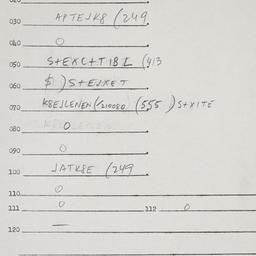 030 APTEJK8 (249
040 O
050 S+EKC+TIBI (413
060 $ )S+EJKET
070 K8EJLENEN(/210080 (555 )S+XITE
080 O
090 O
100 JATK8E (249
110 O
111 O 112 O
120 —